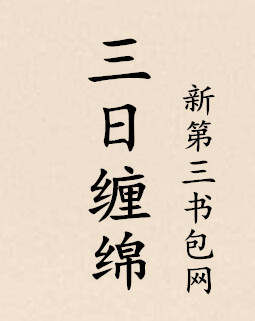 三日缠绵
新第三书包网